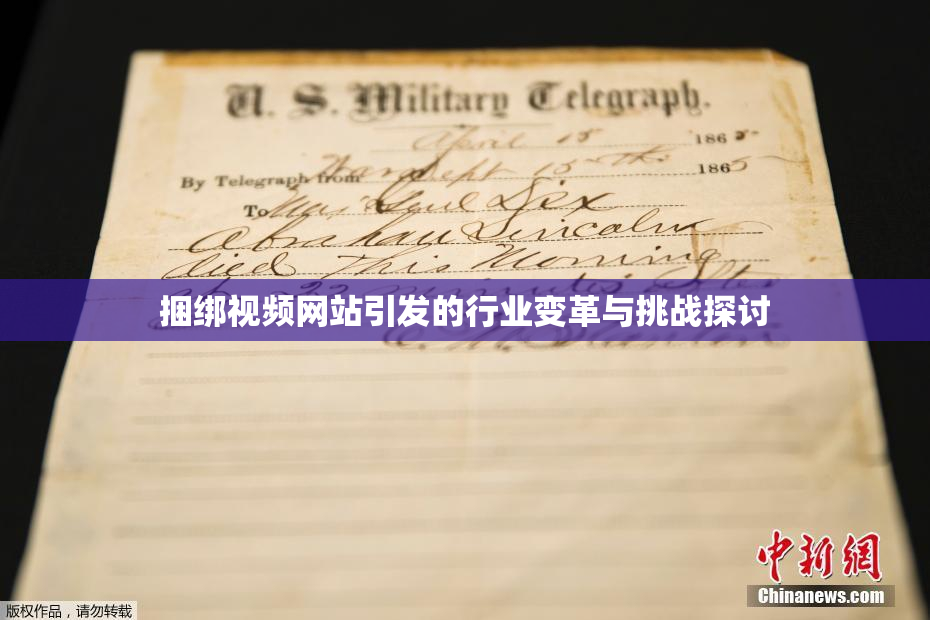 U. S. Military Telegraph.
April 15 1865
By Telegraph from War Dept 15th 1865
To Maj Genl Dix
Abraham Lincoln
died This Morning
22 minutes after
捆绑视频网站引发的行业变革与挑战探讨
E. M. Stanton
中新網
Chinanews.com
版权作品，请勿转载